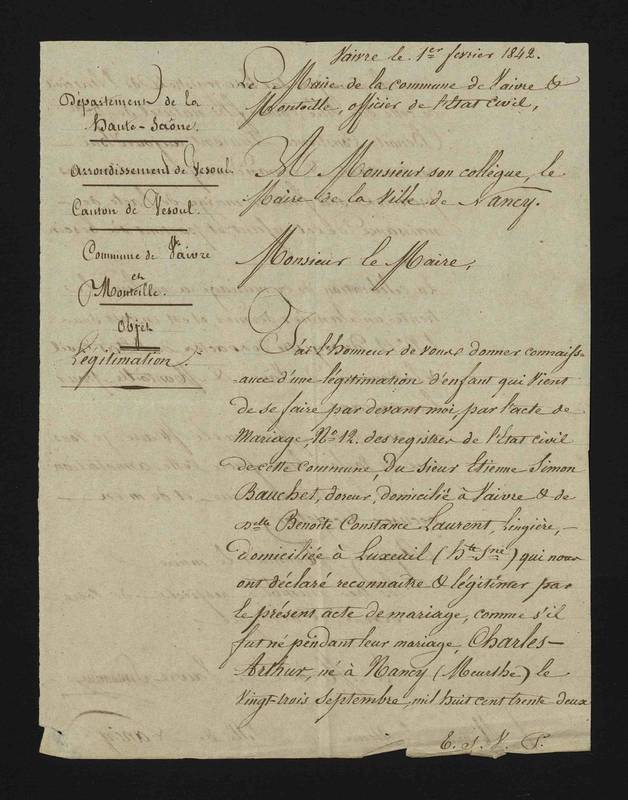 Vaivre le 1er fevrier 1842.
Le Maire de la commune de Vaivre &
Montoille, officier de l'Etat civil,
Département de la
Haute-Saône.
Arrondissement de Vesoul.
Canton de Vesoul.
Commune de Vaivre
et
Montoille.
Objet
Légitimation.
A Monsieur son collègue, le
Maire de la Ville de Nancy.
Monsieur le Maire,
J'ai l'honneur de vous donner connaiss-
-ance d'une légitimation d'enfant qui vient
de se faire par devant moi, par l'acte de
Mariage, No 12. des registres de l'Etat civil
de cette commune, Du sieur Etienne Simon
Bauchet, doreur, domicilié à Vaivre & de
Delle Benoite Constance Laurent lingière, -
domiciliée à Luxeuil (hte Sne) qui nous
ont déclaré reconnaitre & légitimer par
le présent acte de mariage, comme s'il
fut né pendant leur mariage, Charles-
Arthur, né à Nancy (Meurthe) le
Vingt-trois Septembre, mil huit cent trente deux
T. S. V. P.